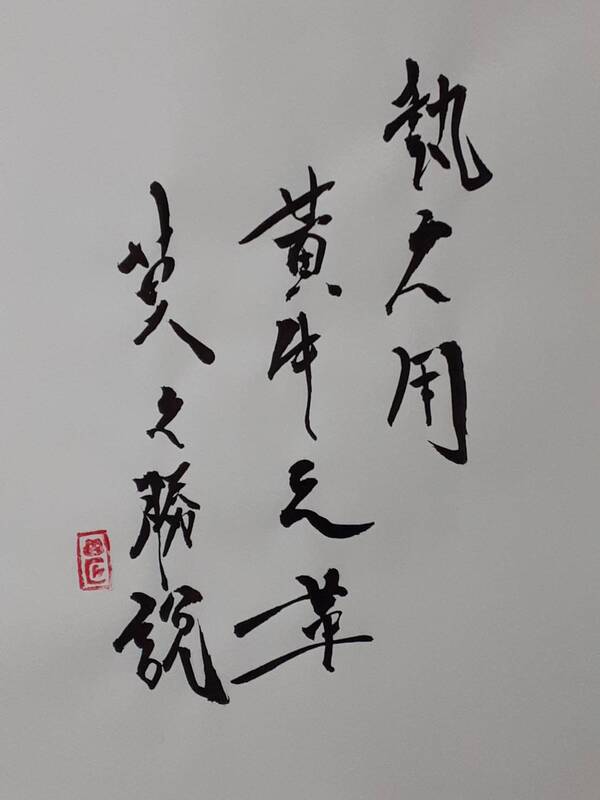 執之用
黃牛之革
莫之勝說